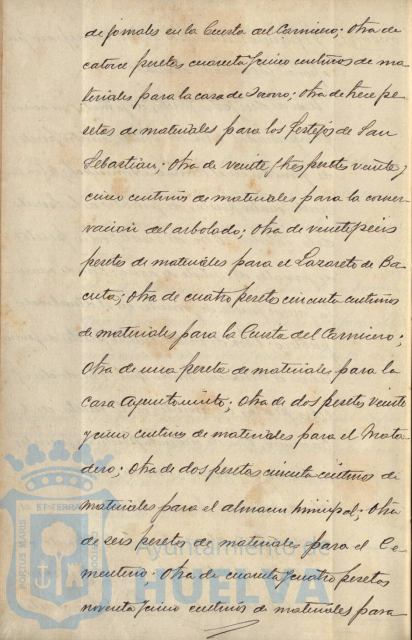 de jornales en la Cuesta del Carnicero; Otra de
catorce pesetas cuarenta y cinco centimos de ma-
teriales para la casa de Socorro; otra de trece pe-
setas de materiales para los festejos de San
Sebastian; Otra de veinte y tres pesetas veinte y
cinco centimos de materiales para la conser-
vacion del arbolado; Otra de veinte y seis
pesetas de materiales para el Lazareto de Ba-
cuta; Otra de cuatro pesetas cincuenta centimos
de materiales para la Cuesta del Carnicero;
Otra de una peseta de materiales para la
casa Ayuntamiento; Otra de dos pesetas veinte
y cinco centimos de materiales para el Mata-
dero; Otra de dos pesetas cincuenta centimos de
materiales para el almacen Municipal; Otra
de seis pesetas de materiales para el Ce-
menterio; Otra de cuarenta y cuatro pesetas
noventa y cinco centimos de materiales para
PORTUS MARIS ET TERRAE CUSTODIA
Ayuntamiento de
HUELVA